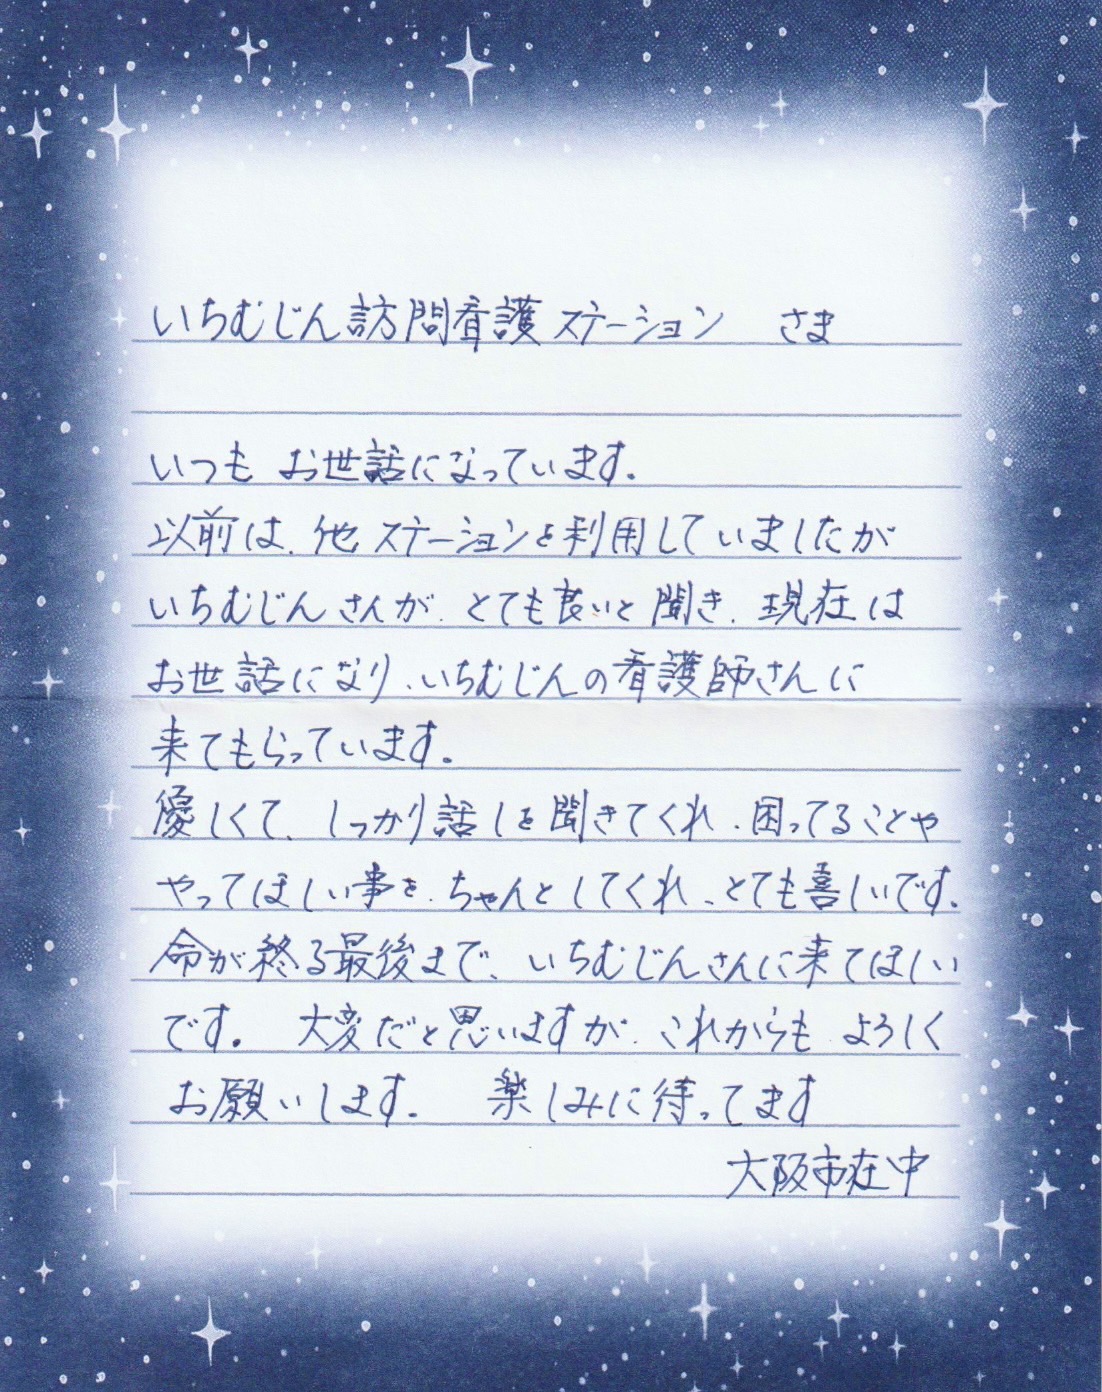 いちむじん訪問看護ステーション　さま
いつも お世話になっています。
以前は、他ステーションを利用していましたが
いちむじんさんが、とても良いと聞き、現在は
お世話になり、いちむじんの看護師さんに
来てもらっています。
優しくて、しっかり話しを聞きてくれ、困ってることや
やってほしい事を、ちゃんとしてくれ、とても喜しいです。
命が終る最後まで、いちむじんさんに来てほしい
です。　大変だと思いますが、これからも よろしく
お願いします。　楽しみに待ってます
大阪市在中